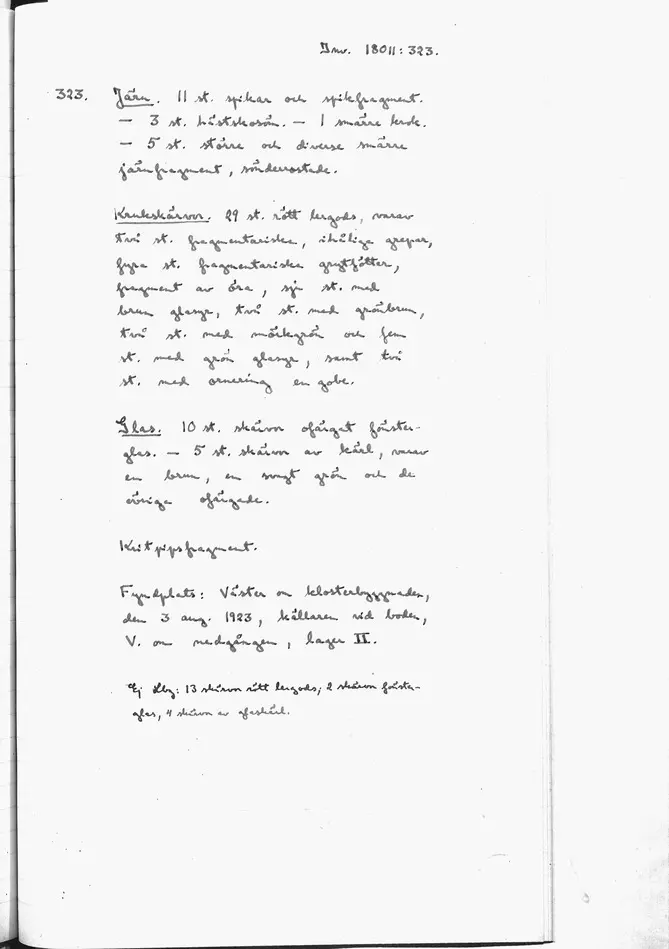 Inv. 18011:323.
323. Järn. 11 st. spikar och spikfragment.
— 3 st. hästskosöm. — 1 smärre krok.
— 5 st. större och diverse smärre
järnfragment, sönderrostade.
Krukskärvor. 29 st. rött lergods, varav
två st. fragmentariska, ihåliga grepar,
fyra st. fragmentariska grytfötter,
fragment av öra, sju st. med
brun glasyr, två st. med grönbrun,
två st. med mörkgrön och fem
st. med grön glasyr, samt två
st. med ornering en gobe.
Glas. 10 st. skärvor ofärgat fönster-
glas. — 5 st. skärvor av kärl, varav
en brun, en svagt grön och de
övriga ofärgade.
Kritpipsfragment.
Fyndplats: Väster om klosterbyggnaden,
den 3 aug. 1923, källaren vid boden,
V. om nedgången, lager II.
Ej : 13 skärvor rött lergods; 2 skärvor fönster-
glas, 4 skärvor av glaskärl.